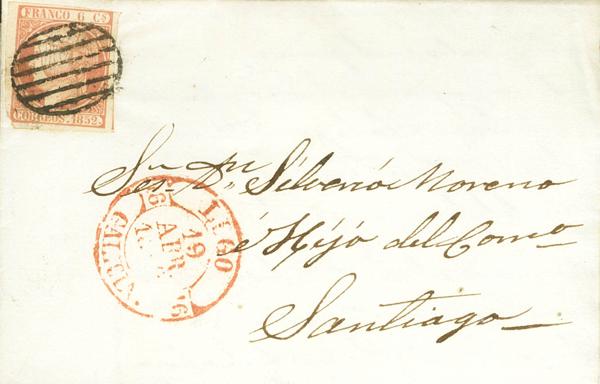 FRANCO 6 Cs
CORREOS. 1852.
Sr. Dn. Silverio Moreno
é Hijo del Com.o
Santiago
LUGO
19
ABR
GALICIA.